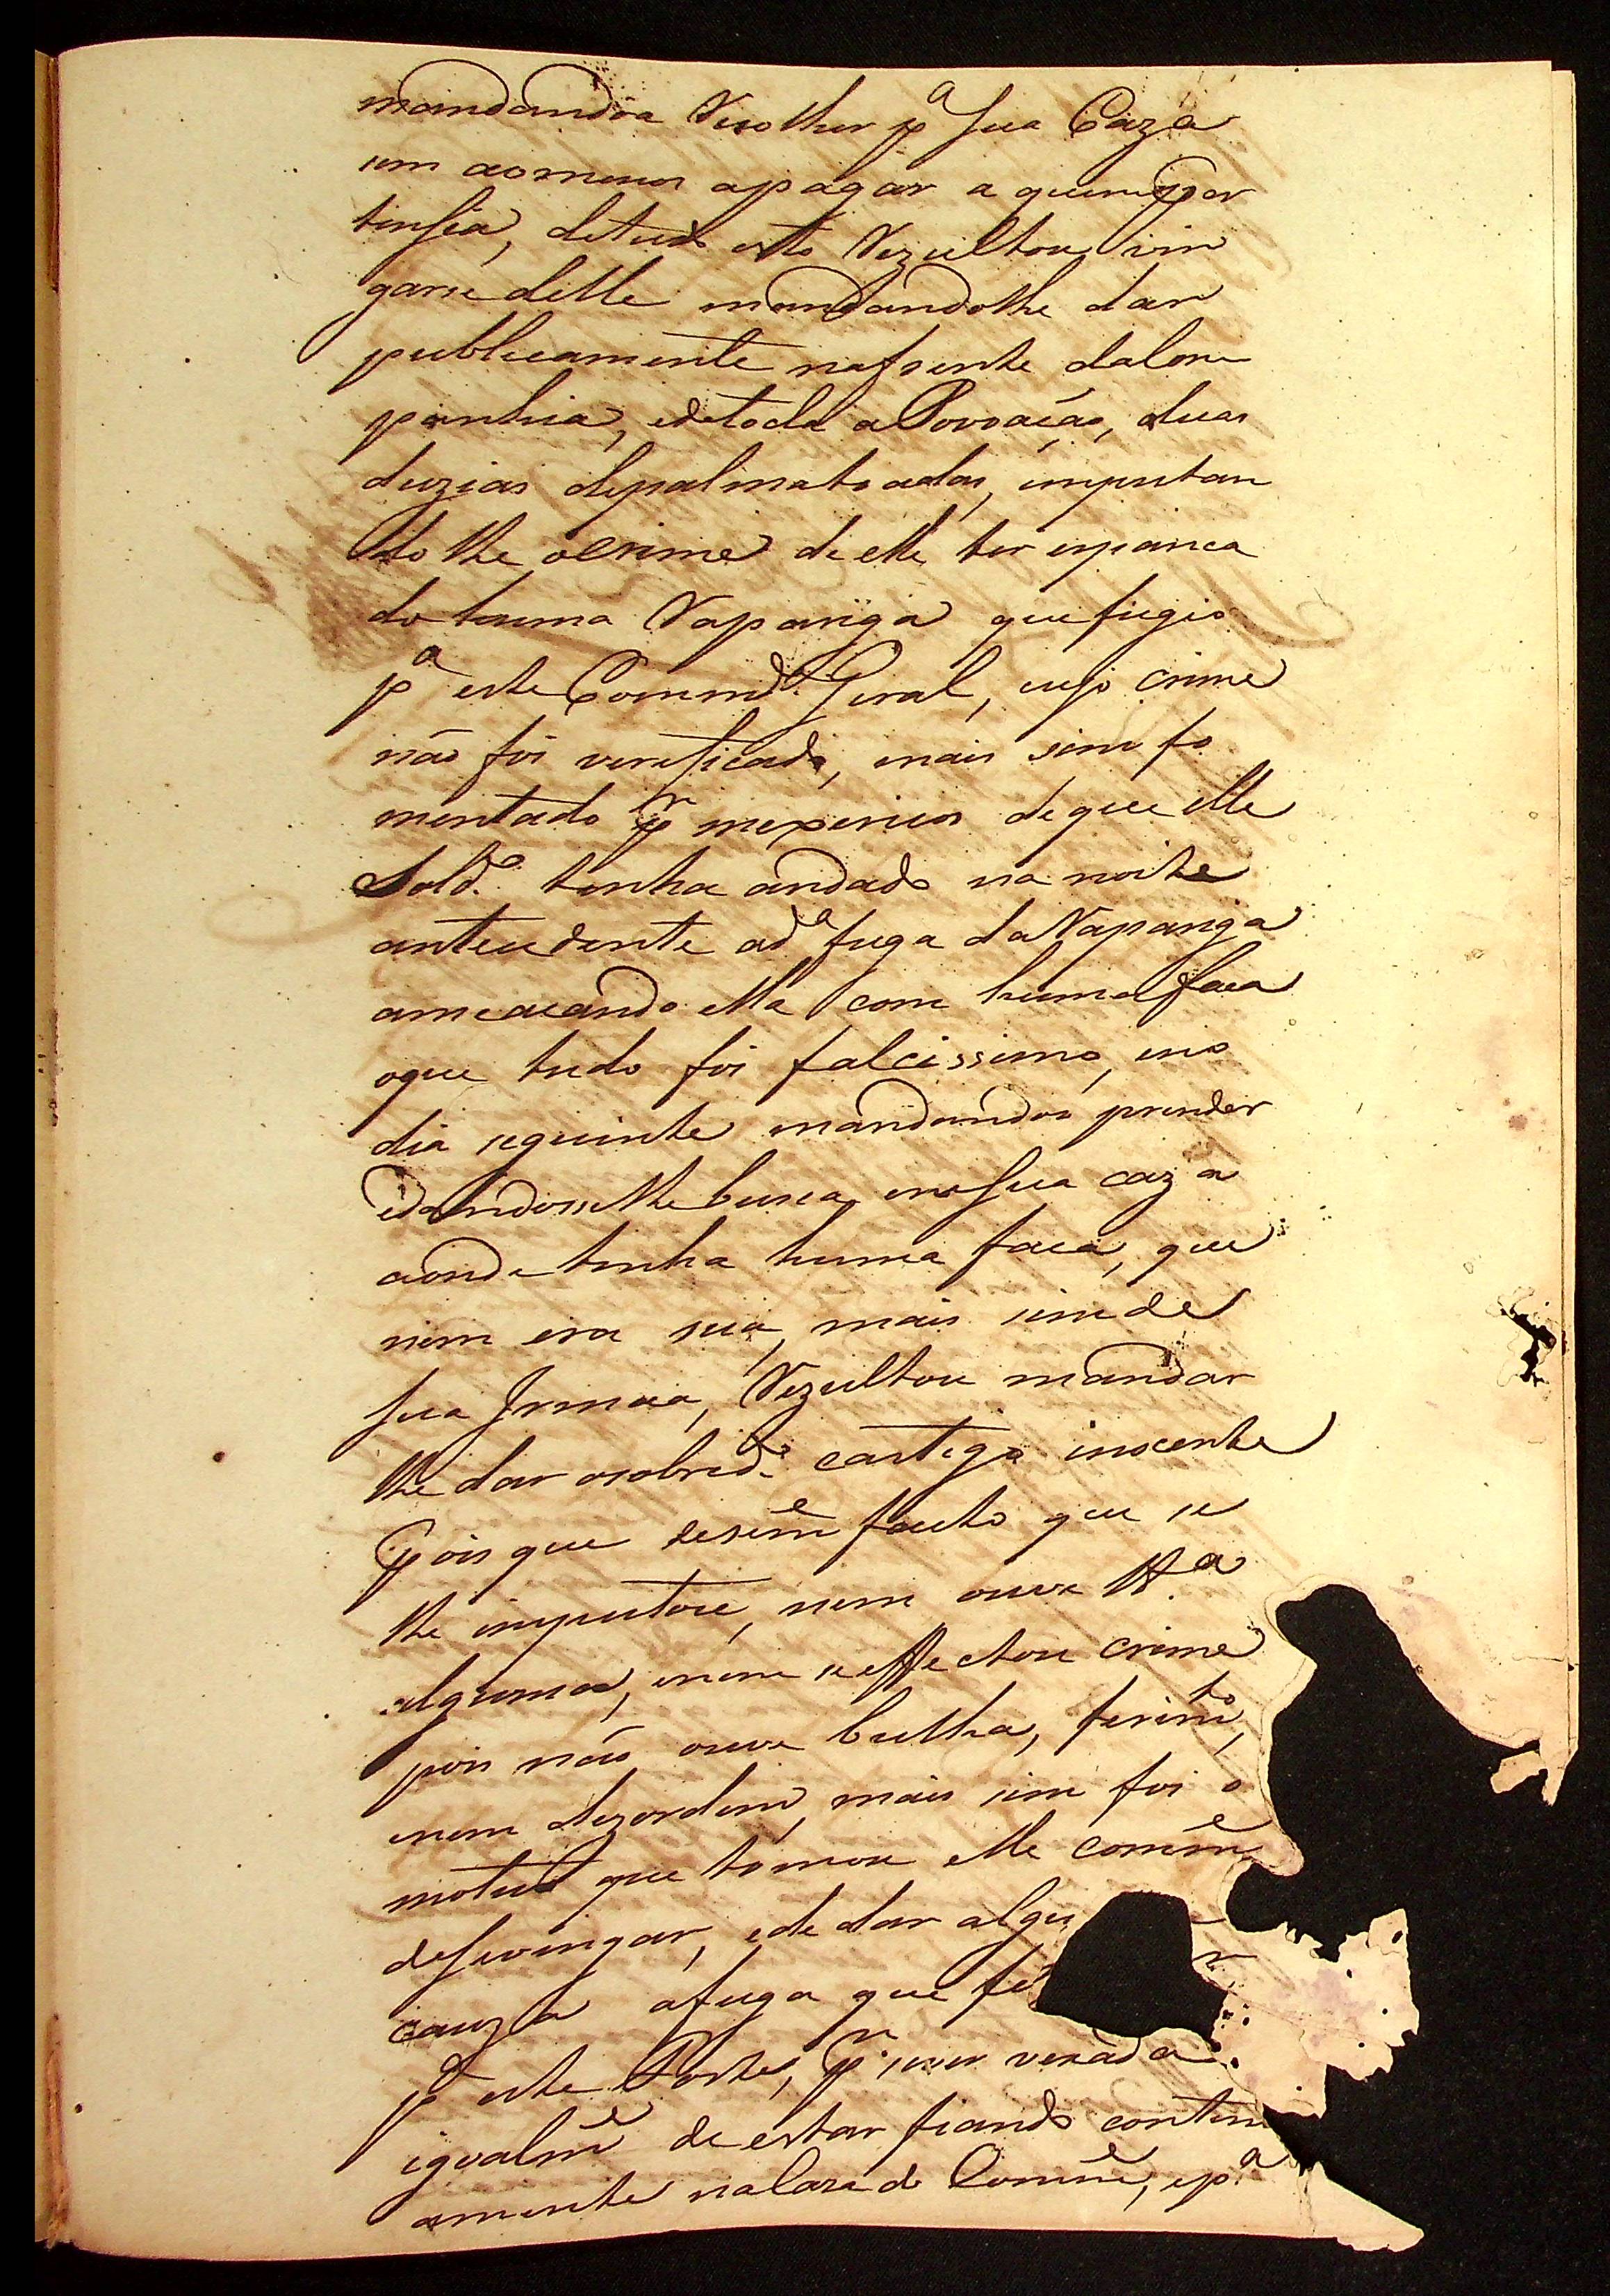 mandandoa Recolher pª sua Caza
sem aomenos apagar a quem per
tensia, detudo esto Rezultou vin
garse delle mandandolhe dar
publicamente nafrente daCom
panhia, edetoda aPovoação, duas
duzias depalmatoadas, imputan
do lhe oCrime de elle ter espanca
do huma Rapariga que fugio
pª este Commdº Geral, cujo crime
não foi verificado, mais sim fo
mentado pr mexericos de que elle
Soldº tinha andado na noite
antecedente adª fuga daRapariga
ameacando ella com huma faca
oque tudo foi falcissimo, eno
dia seguinte mandandoo prender
edandosselhe busca, ena sua caza
aonde tinha huma faca, que
nem era sua, mais sim de
sua Irmaa, Rezultou mandar
lhe dar osobredº castigo inocente
pois que desême fauto que se
lhe imputou, nem ouve
alguma, enem se effectou crime
pois não ouve bulha, ferimto,
enem dezordem, mais sim foi o
motivo que tomou elle comme
desevingar, ede dar algu
cauza afuga que fe
pª este Porte, pr ser verada
igoalme de estar fiando contin
amente naCasa do Comme, epª